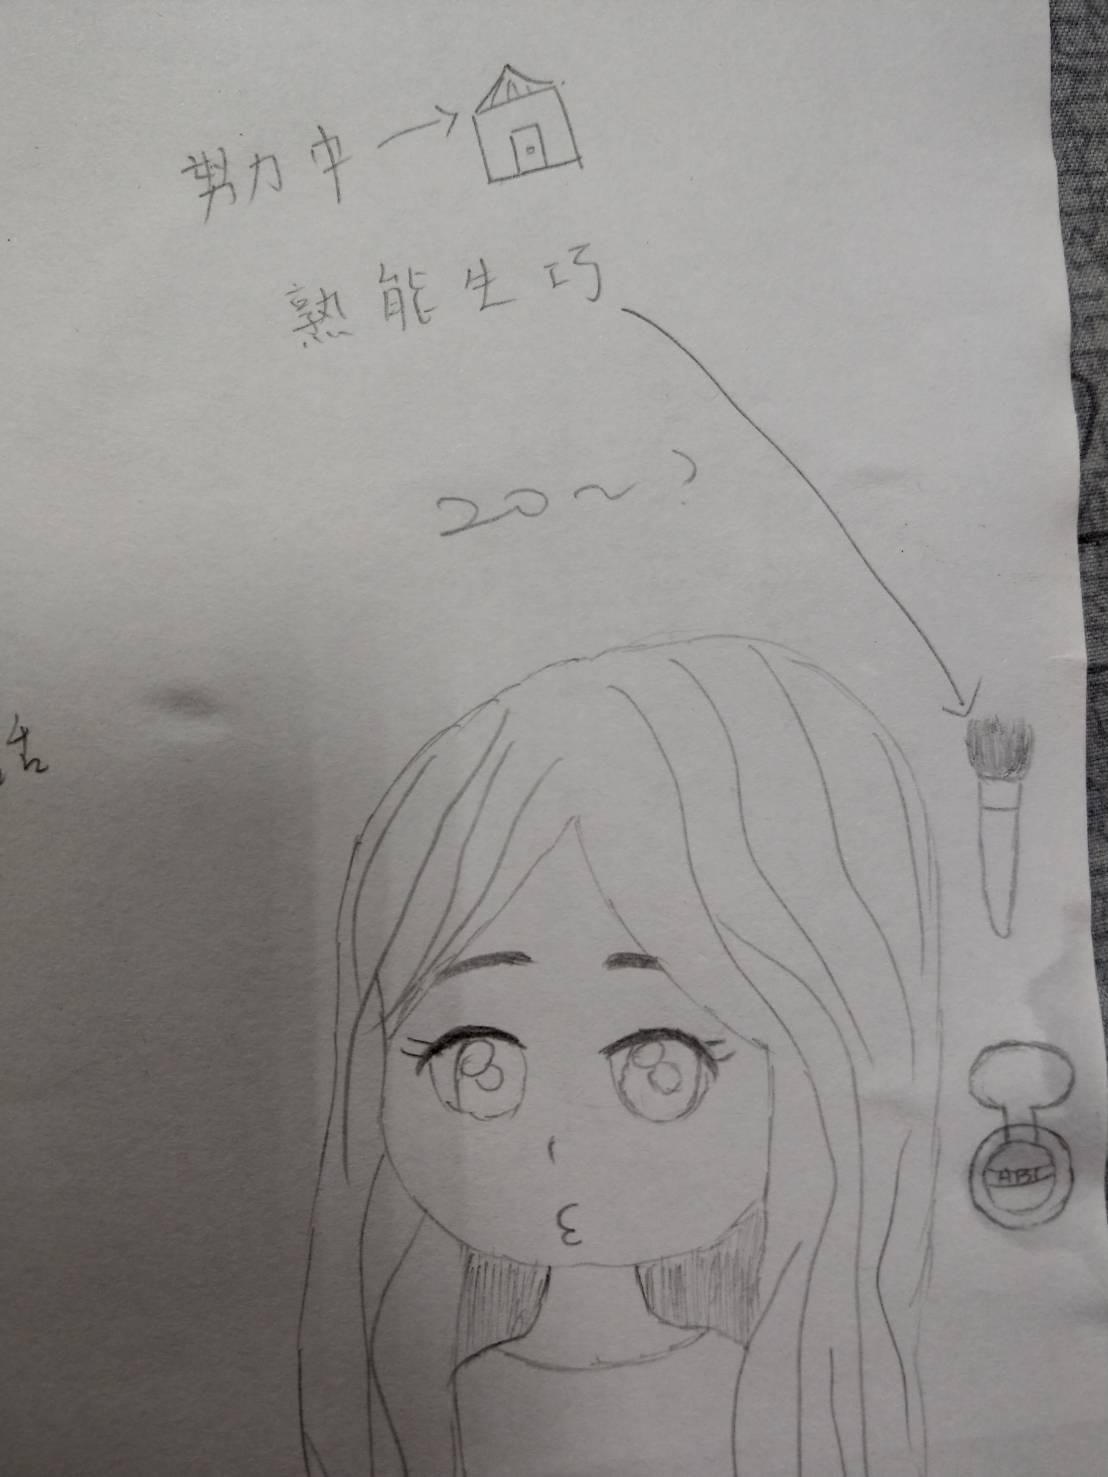 努力中
熟能生巧
20~?
ABC